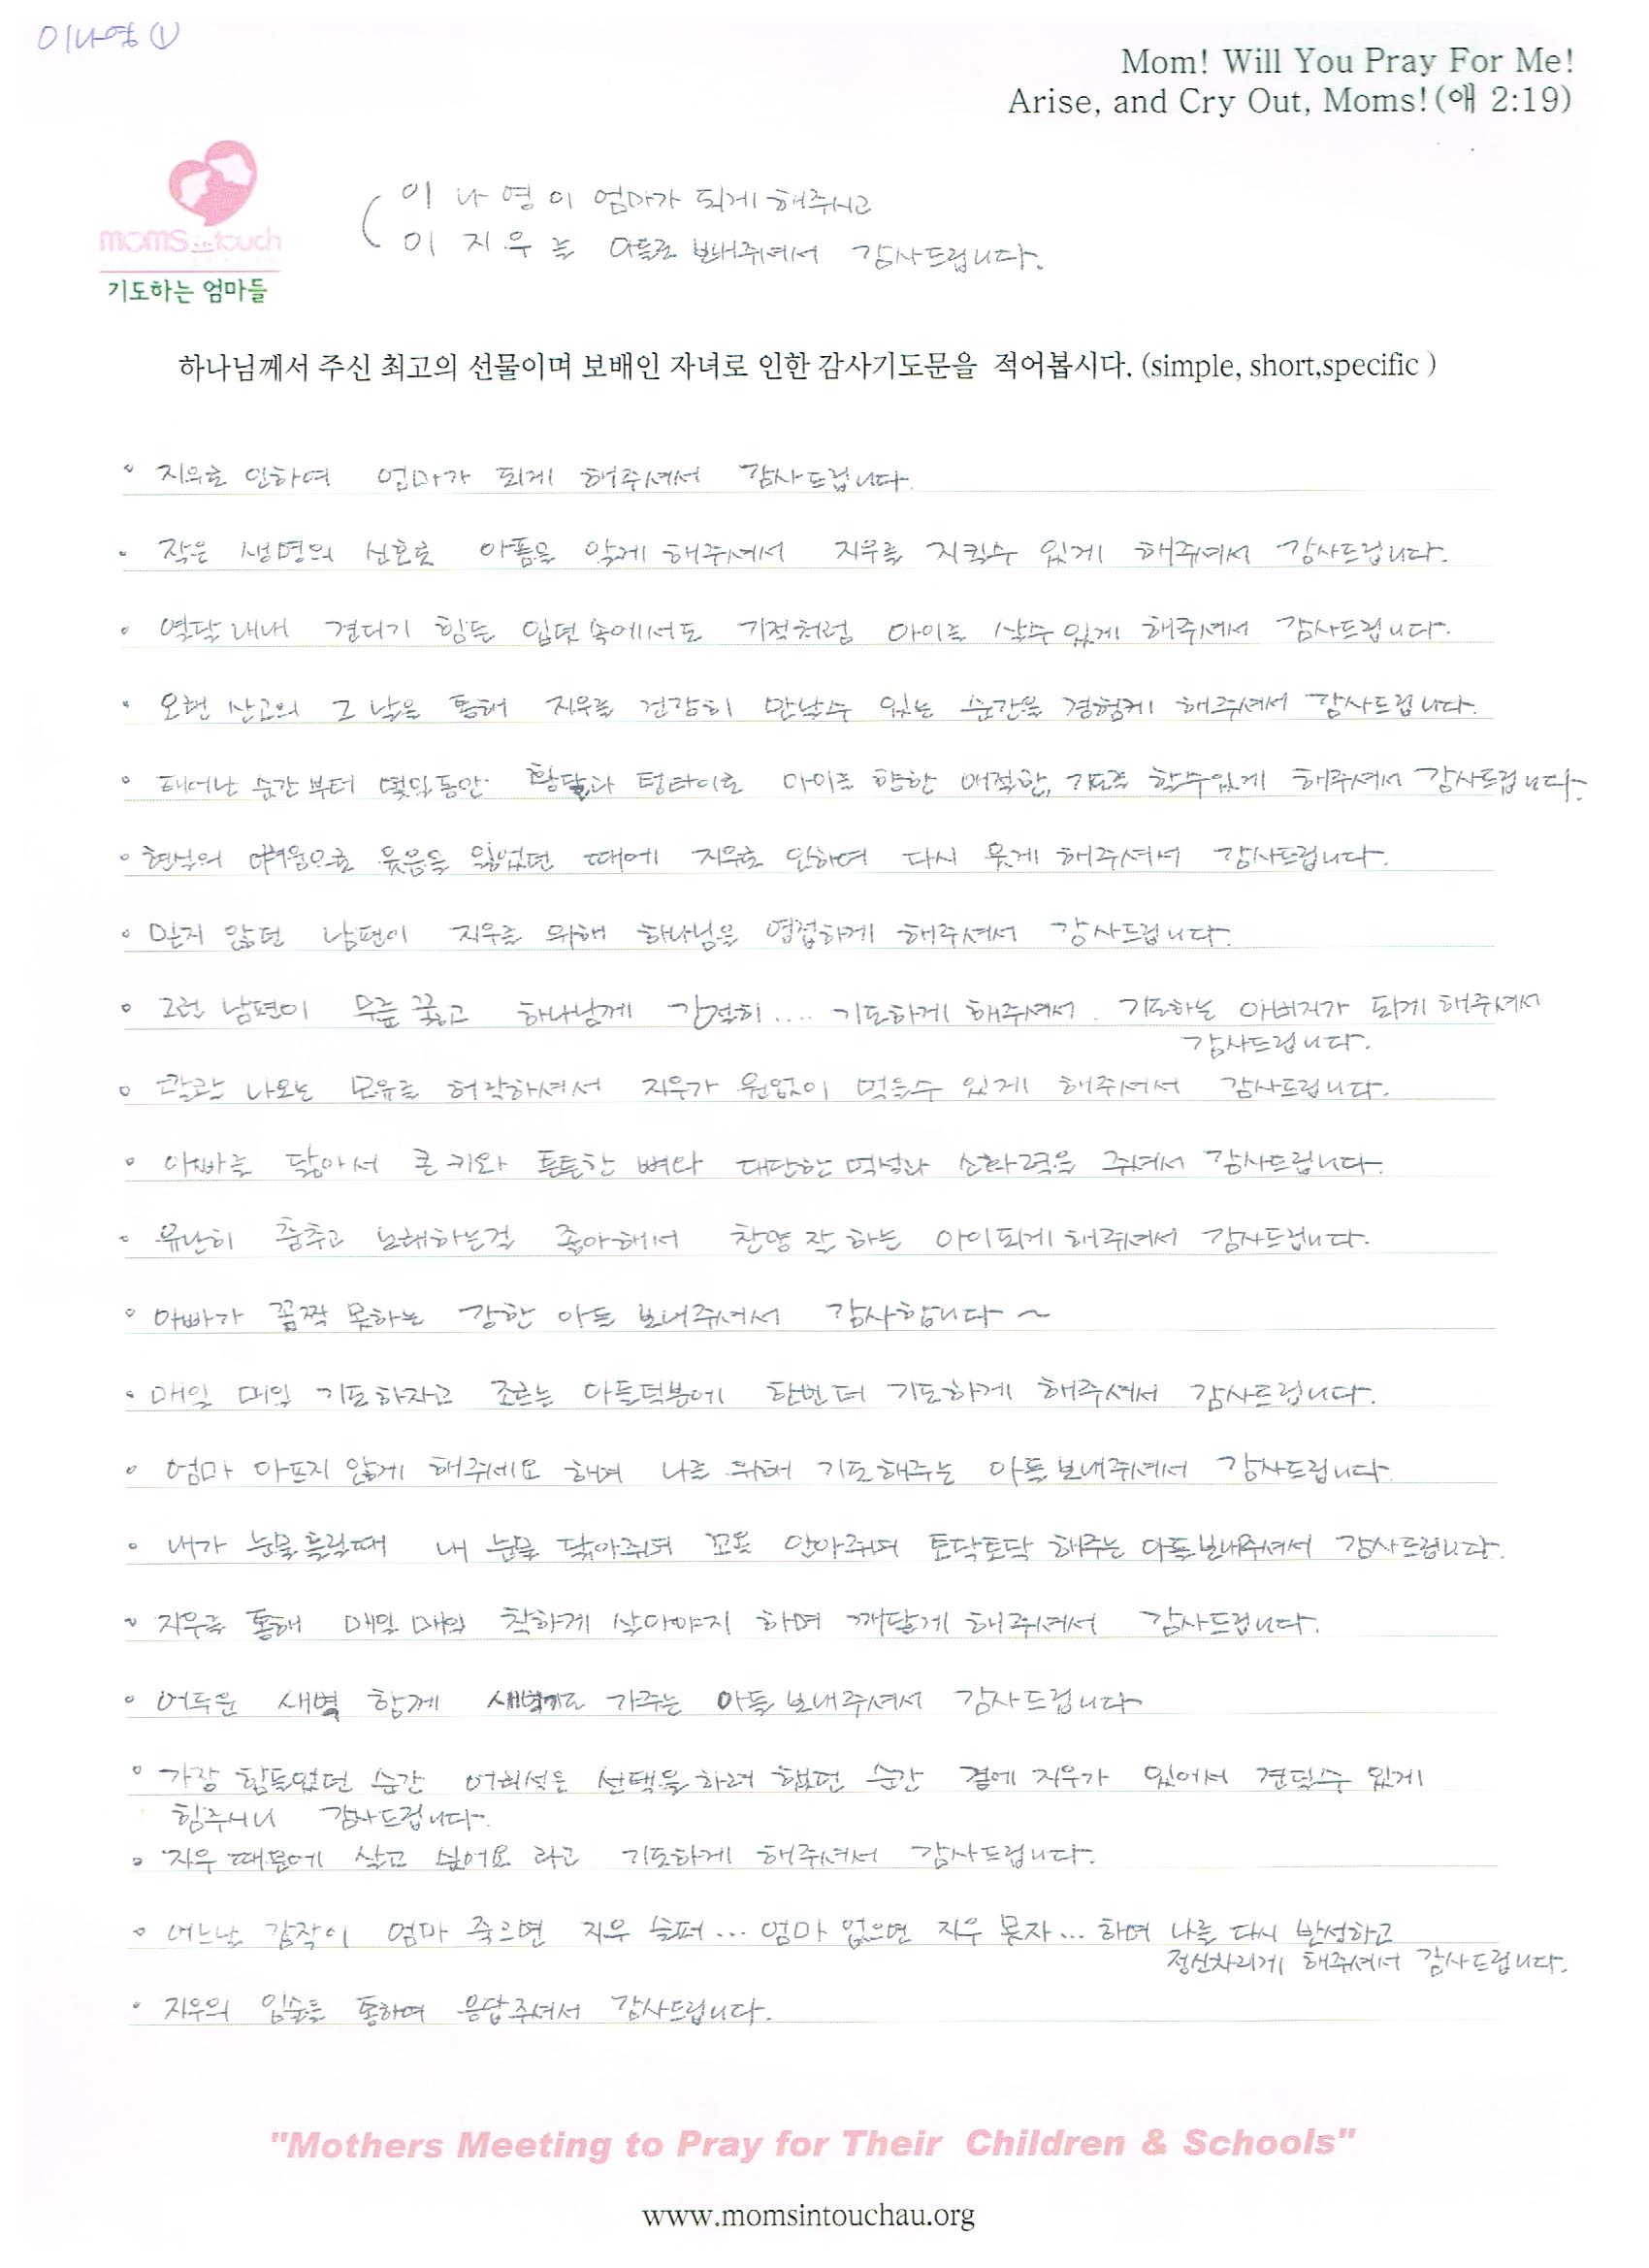 이나영 ①
Mom! Will You Pray For Me!
Arise, and Cry Out, Moms!(애 2:19)
moms in touch
기도하는 엄마들
이 나 영 이 엄마가 되게 해주시고
이 지 우 를 아들로 보내주셔서 감사드립니다.
하나님께서 주신 최고의 선물이며 보배인 자녀로 인한 감사기도문을 적어봅시다. (simple, short,specific )
• 지우로 인하여 엄마가 되게 해주셔서 감사드립니다.
• 작은 생명의 신호로 아픔을 알게 해주셔서 지우를 지킬수 있게 해주셔서 감사드립니다.
• 열달 내내 견디기 힘든 입덧 속에서도 기적처럼 아이를 낳을수 있게 해주셔서 감사드립니다.
• 오랜 산고의 그 날을 통해 지우를 건강히 만날수 있는 순간을 경험케 해주셔서 감사드립니다.
• 태어난 순간부터 몇일동안 황달과 아이를 향한 애절한 기도를 할수있게 해주셔서 감사드립니다.
• 현실의 어려움으로 웃음을 잃었던 때에 지우로 인하여 다시 웃게 해주셔서 감사드립니다.
• 믿지 않던 남편이 지우를 위해 하나님을 영접하게 해주셔서 감사드립니다.
• 그런 남편이 무릎 꿇고 하나님께 간절히.... 기도하게 해주셔서. 기도하는 아버지가 되게 해주셔서
감사드립니다.
• 콸콸 나오는 모유를 허락하셔서 지우가 원없이 먹을수 있게 해주셔서 감사드립니다.
• 아빠를 닮아서 큰 키와 튼튼한 뼈와 대단한 먹성과 소화력을 주셔서 감사드립니다.
• 유난히 춤추고 노래하는걸 좋아해서 찬양 잘 하는 아이되게 해주셔서 감사드립니다.
• 아빠가 꼼짝 못하는 강한 아들 보내주셔서 감사합니다 ~
• 매일 매일 기도하자고 조르는 아들덕분에 한번 더 기도하게 해주셔서 감사드립니다.
• 엄마 아프지 않게 해주세요 하며 나를 위해 기도해주는 아들 보내주셔서 감사드립니다.
• 내가 눈물 흘릴때 내 눈물 닦아주며 꼬옥 안아주며 토닥토닥 해주는 아들 보내주셔서 감사드립니다.
• 지우를 통해 매일 매일 착하게 살아야지 하며 깨닫게 해주셔서 감사드립니다.
• 어두운 새벽 함께 새벽기도 가주는 아들 보내주셔서 감사드립니다
• 가장 힘들었던 순간 어리석은 선택을 하려 했던 순간 곁에 지우가 있어서 견딜수 있게
힘주시니 감사드립니다.
• 지우 때문에 살고 싶어요 라고 기도하게 해주셔서 감사드립니다.
• 어느날 갑작이 엄마 죽으면 지우 슬퍼... 엄마 없으면 지우 못자... 하며 나를 다시 반성하고
정신차리게 해주셔서 감사드립니다.
• 지우의 입술을 통하여 응답주셔서 감사드립니다.
"Mothers Meeting to Pray for Their Children & Schools"
www.momsintouchau.org